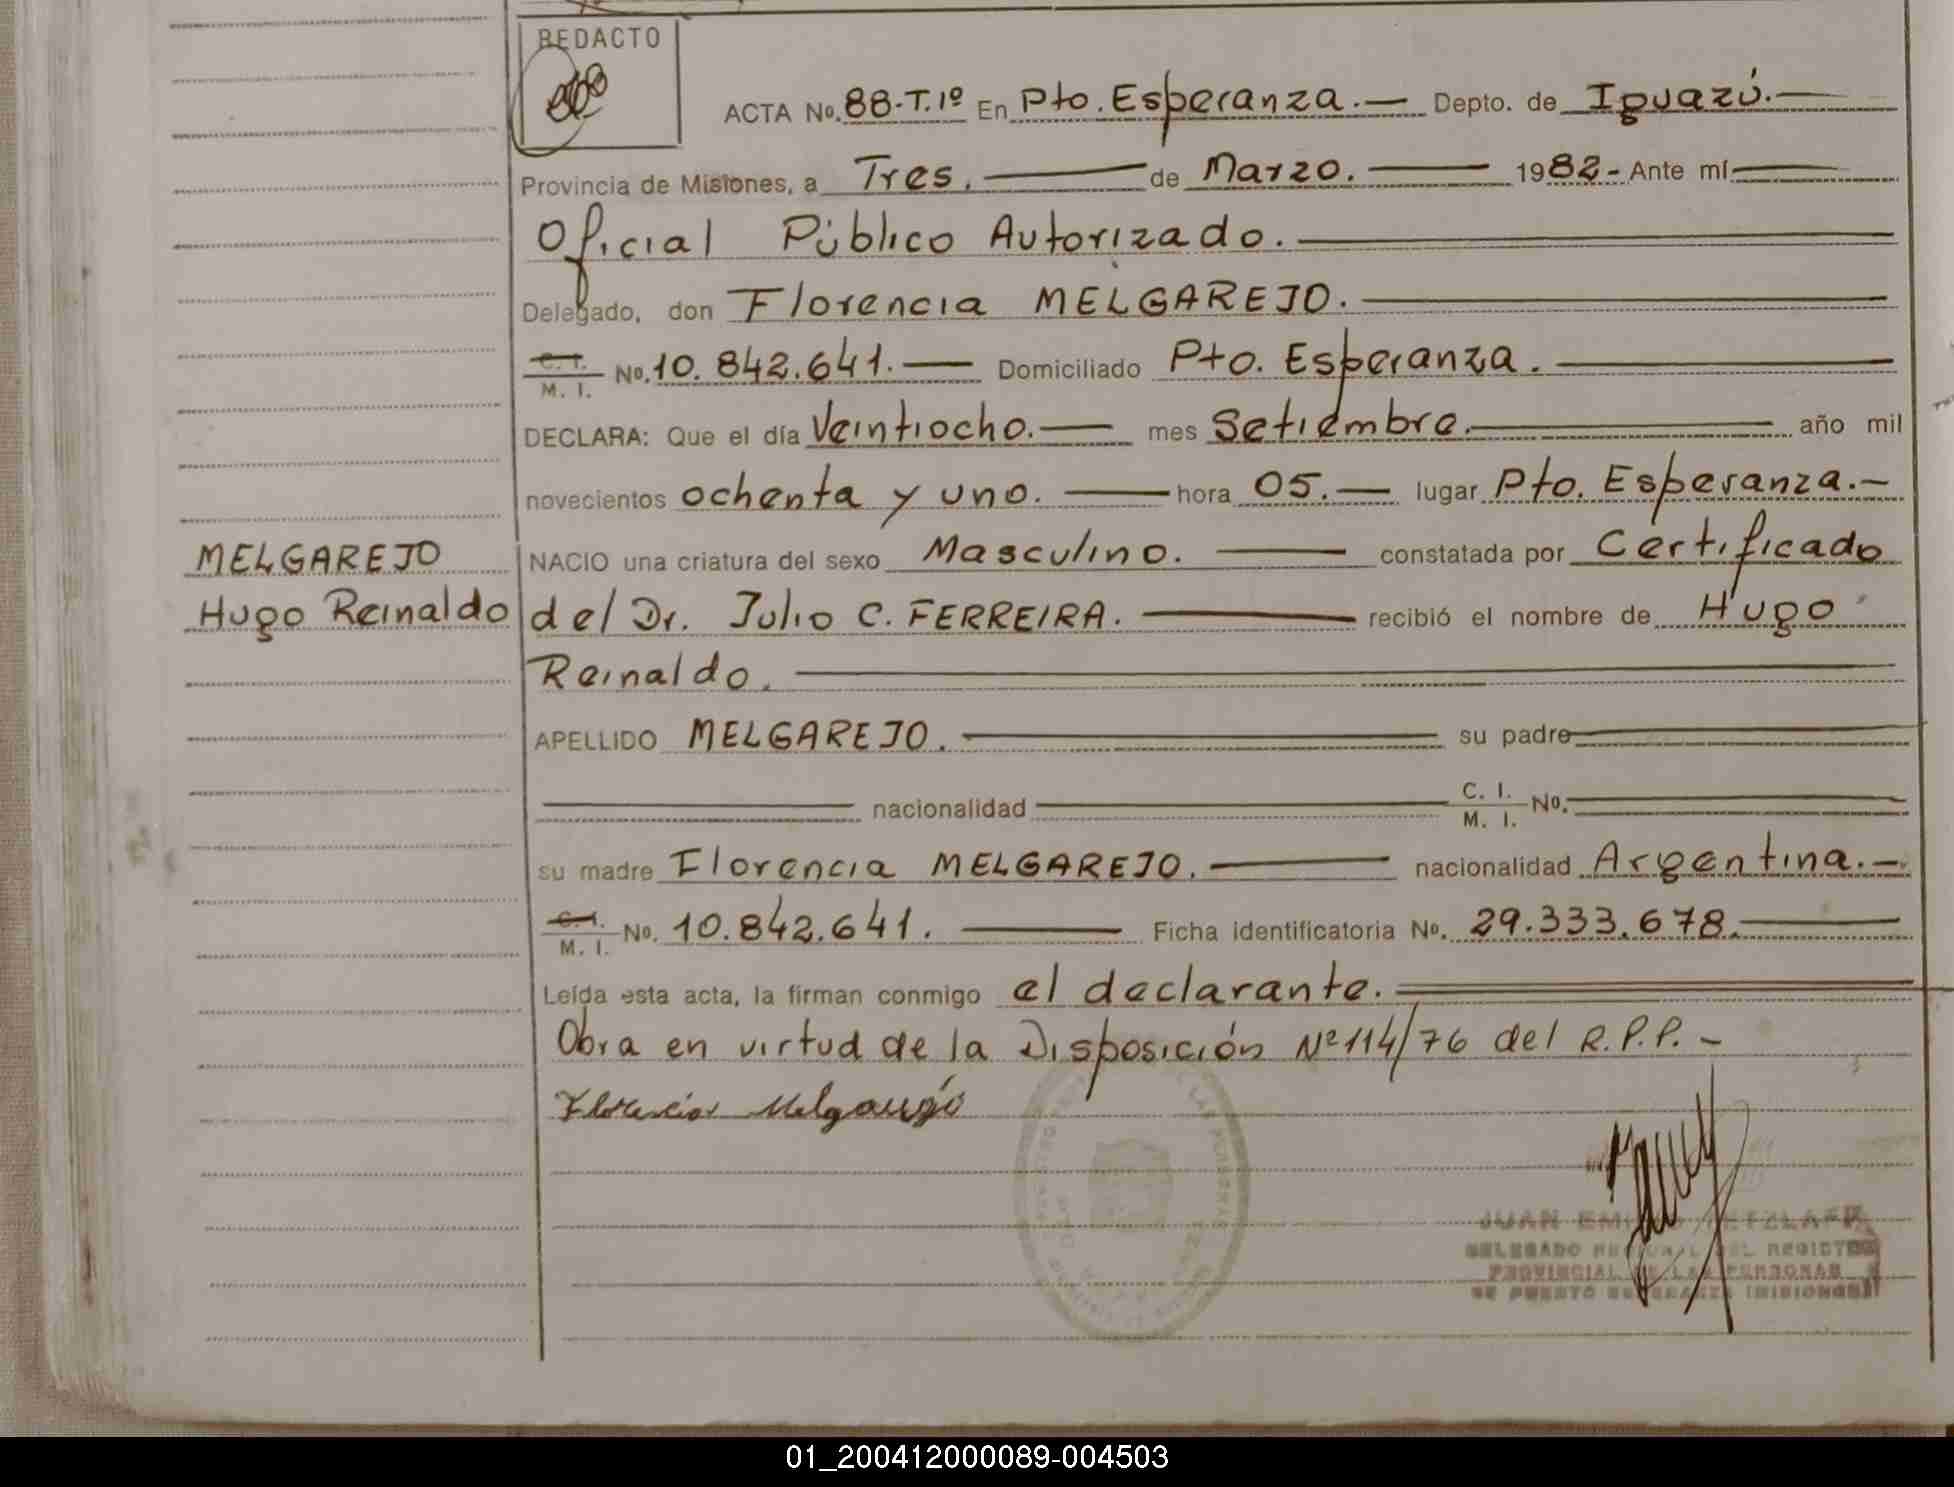 REDACTO
ACTA No. 88-T.1º En Pto. Esperanza.— Depto. de Iguazú.—
Provincia de Misiones, a Tres. — de Marzo. — 1982- Ante mí
Oficial Público Autorizado.
Delegado, don Florencia MELGAREJO.
C. I. / M. I. No. 10.842.641.— Domiciliado Pto. Esperanza.
DECLARA: Que el día Veintiocho.— mes Setiembre. año mil
novecientos ochenta y uno. — hora 05.— lugar Pto. Esperanza.-
NACIO una criatura del sexo Masculino. — constatada por Certificado
MELGAREJO
Hugo Reinaldo
del Dr. Julio C. FERREIRA. — recibió el nombre de Hugo
Reinaldo.
APELLIDO MELGAREJO. su padre
nacionalidad C. I. / M. I. No.
su madre Florencia MELGAREJO. — nacionalidad Argentina.-
C. I. / M. I. No. 10.842.641. — Ficha identificatoria No. 29.333.678.
Leída esta acta, la firman conmigo el declarante.
Obra en virtud de la Disposición Nº 114/76 del R.P.P. -
Florencia Melgarejo
JUAN
DELEGADO DEL REGISTRO
PROVINCIAL DE LAS PERSONAS
DE PUERTO ESPERANZA (MISIONES)
01_200412000089-004503